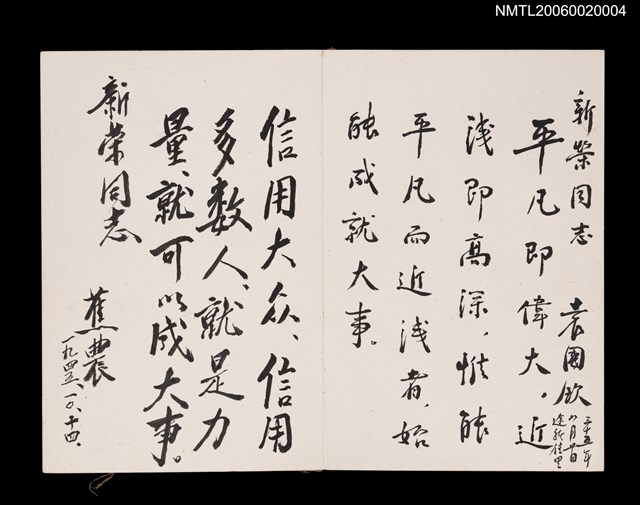 NMTL20060020004
新榮同志
平凡即偉大,近
淺即高深,惟能
平凡而近淺者,始
能成就大事。
袁國欽
三十五年
八月廿日
信用大众、信用
多数人、就是力
量、就可以成大事。
新荣同志
蕉農
一九四五、一〇、十四、